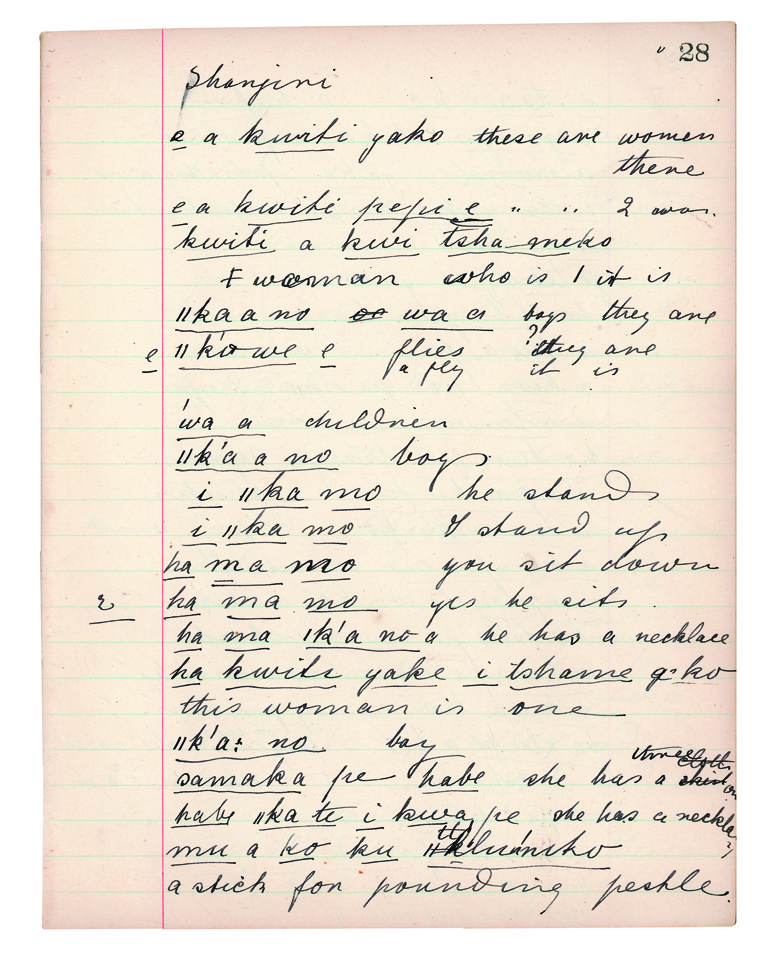 " 28
Shanjini
e a kwiti yako these are women
there
e a kwiti pepi e " " 2 wom.
kwiti a kwi tsha meko
I woman who is 1 it is
ǁkaa no wa a boys they are
e ǁk'o we e flies ? they are
a fly it is
'wa a children
ǁk'a a no boys
i ǁka mo he stands
i ǁka mo I stand up
ha ma mo you sit down
ha ma mo yes he sits.
ha ma ǀk'a no a he has a necklace
ha kwiti yake i tshame ko
this woman is one
ǁk'a: no boy
samaka pe habe she has a
habe ǁka te i kwa pe she has a neckla
mu a ko ku
a stick for pounding pestle.